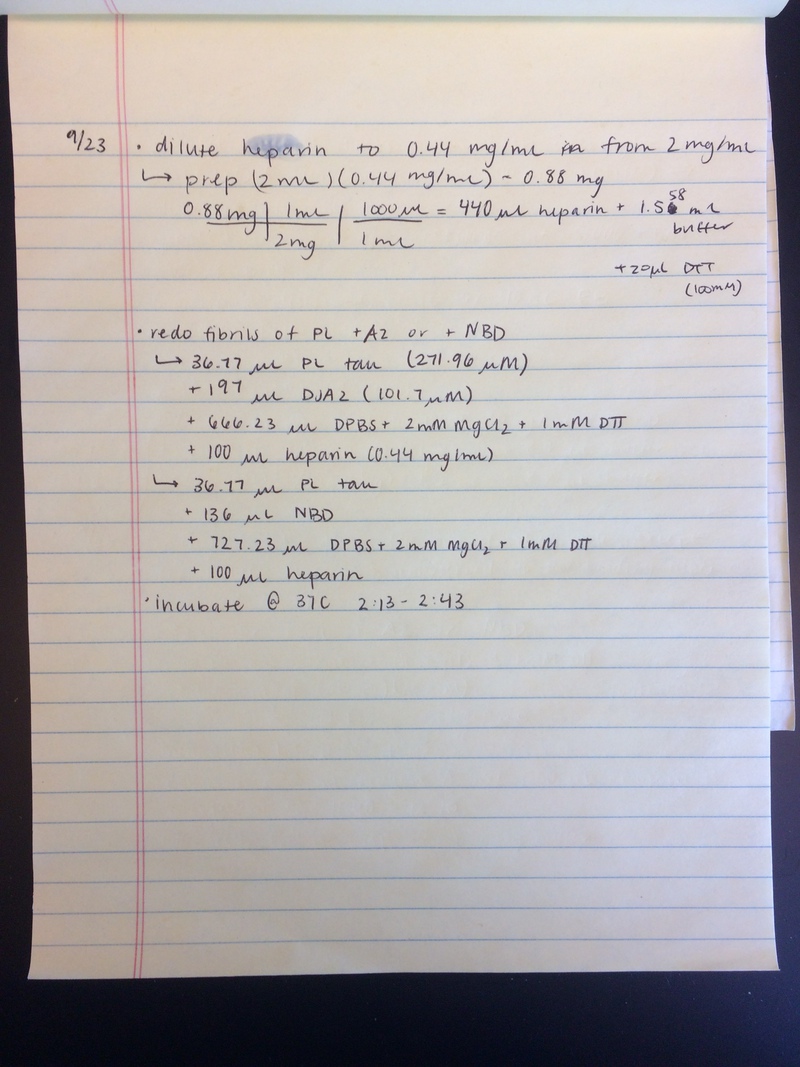 9/23 • dilute heparin to 0.44 mg/mL from 2 mg/mL
↳ prep (2 mL)(0.44 mg/mL) = 0.88 mg
0.88mg | 1mL | 1000 µL = 440 µL heparin + 1.58 mL buffer
2mg | 1mL
+ 20µL DTT
(100mM)
• redo fibrils of PL + A2 or + NBD
↳ 36.77 µL PL tau (271.96 µM)
+ 197 µL DJA2 (101.7 µM)
+ 666.23 µL DPBS + 2mM MgCl₂ + 1mM DTT
+ 100 µL heparin (0.44 mg/mL)
↳ 36.77 µL PL tau
+ 136 µL NBD
+ 727.23 µL DPBS + 2mM MgCl₂ + 1mM DTT
+ 100 µL heparin
• incubate @ 37C 2:13 - 2:43